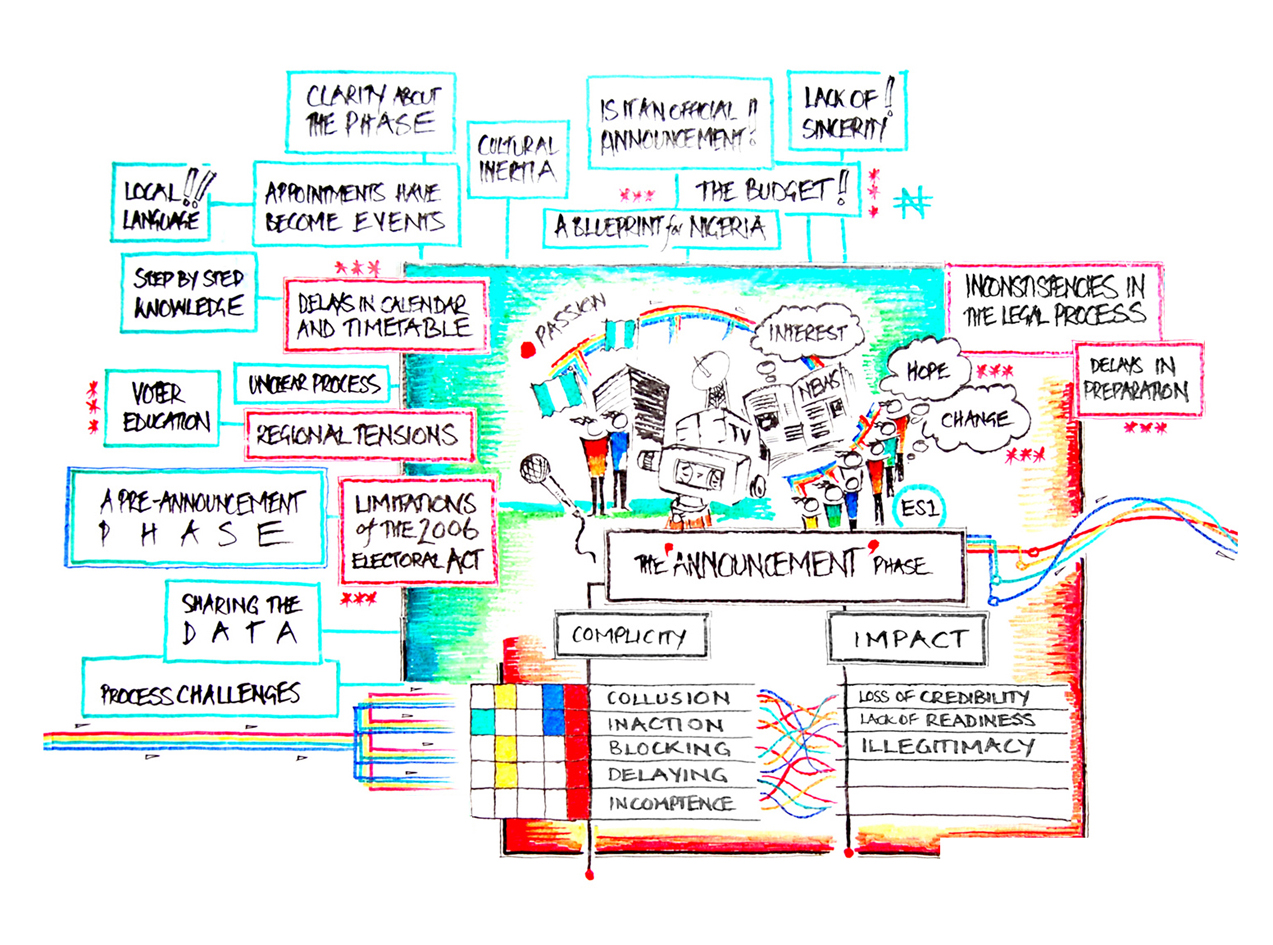 CLARITY ABOUT
THE PHASE
CULTURAL
INERTIA
IS IT AN OFFICIAL !!
ANNOUNCEMENT!
LACK OF !!
SINCERITY
LOCAL !!
LANGUAGE
APPOINTMENTS HAVE
BECOME EVENTS
***
THE BUDGET !!
***
₦
A BLUEPRINT for NIGERIA
STEP BY STEP
KNOWLEDGE
***
DELAYS IN CALENDAR
AND TIMETABLE
INCONSTISTENCIES IN
THE LEGAL PROCESS
PASSION
INTEREST
HOPE
***
CHANGE
***
NEWS
TV
DELAYS IN
PREPARATION
***
UNCLEAR PROCESS
***
VOTER
EDUCATION
REGIONAL TENSIONS
A PRE-ANNOUNCEMENT
PHASE
LIMITATIONS
of THE 2006
ELECTORAL ACT
***
ES1
THE "ANNOUNCEMENT" PHASE
SHARING THE
DATA
PROCESS CHALLENGES
COMPLICITY
IMPACT
COLLUSION
INACTION
BLOCKING
DELAYING
INCOMPTENCE
LOSS OF CREDIBILITY
LACK OF READINESS
ILLEGITIMACY